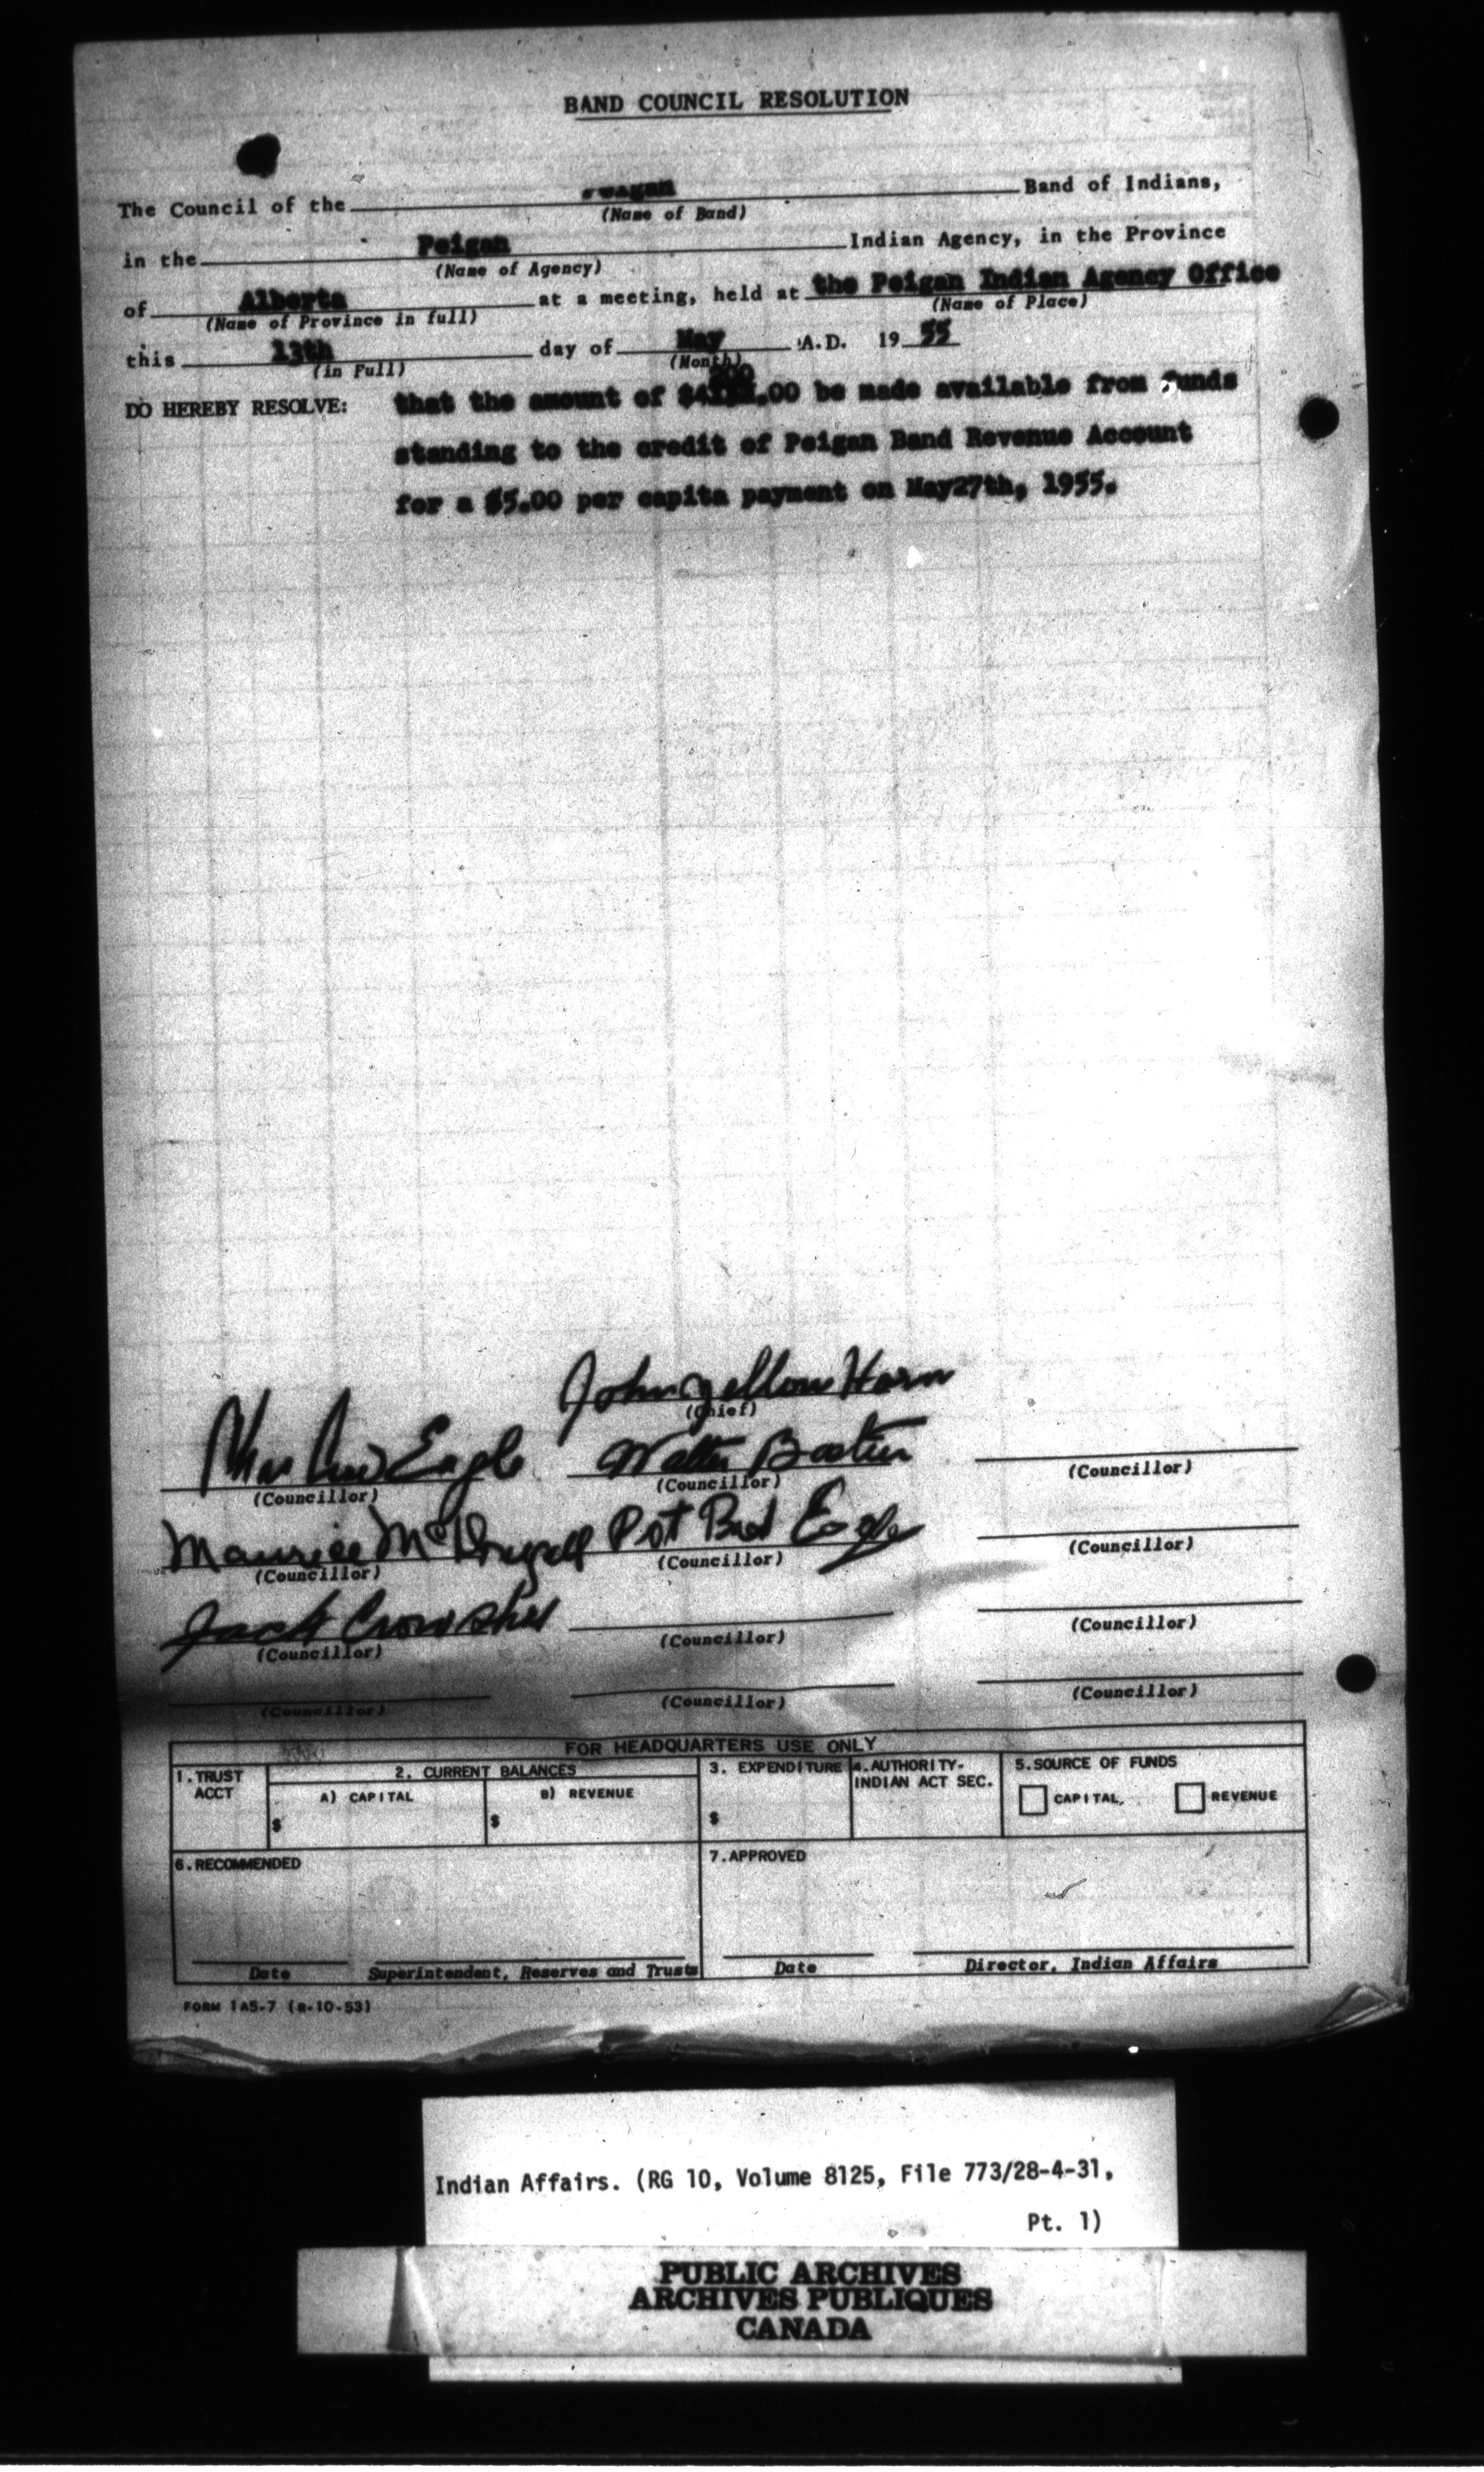 BAND COUNCIL RESOLUTION
The Council of the Peigan Band of Indians,
(Name of Band)
in the Peigan Indian Agency, in the Province
(Name of Agency)
of Alberta at a meeting, held at the Peigan Indian Agency Office
(Name of Province in full) (Name of Place)
this 13th day of May A.D. 19 55
(in Full) (Month)
200
DO HEREBY RESOLVE: that the amount of $4 .00 be made available from funds
standing to the credit of Peigan Band Revenue Account
for a $5.00 per capita payment on May27th, 1955.
John Yellow Horn
(Chief)
Eagle Walter Bastien
(Councillor) (Councillor) (Councillor)
Maurice McDougall Pat Bad Eagle
(Councillor) (Councillor) (Councillor)
Jack Crowshoe
(Councillor) (Councillor) (Councillor)
(Councillor) (Councillor) (Councillor)
FOR HEADQUARTERS USE ONLY
1. TRUST ACCT
2. CURRENT BALANCES
A) CAPITAL
$
B) REVENUE
$
3. EXPENDITURE
$
4. AUTHORITY-
INDIAN ACT SEC.
5. SOURCE OF FUNDS
CAPITAL. REVENUE
6. RECOMMENDED
Date Superintendent, Reserves and Trusts
7. APPROVED
Date Director, Indian Affairs
FORM 1A5-7 (R-10-53)
Indian Affairs. (RG 10, Volume 8125, File 773/28-4-31,
Pt. 1)
PUBLIC ARCHIVES
ARCHIVES PUBLIQUES
CANADA